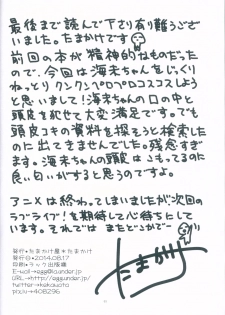 最後まで読んで下さり有り難うござ
いました。たまかけです
前回の本が精神的なものだった
ので、今回は海未ちゃんをじっくり
ねっとりクンクンペロペロコスコスしよう
と思いまして!海未ちゃんの口の中と
頭皮を犯せて大変満足です。でも
頭皮コキの資料を探そうと検索した
のに出てきませんでした。残念すぎ
ます。海未ちゃんの頭皮はこもってるのに
良い匂いがすると思うのですよ。
アニメは終わってしまいましたが次回の
ラブライブ!を期待して心待ちにして
います。それではまたどこかでー
発行*たまかけ屋*たまかけ
発行日*2014.08.17
印刷*ラック出版様
たまかけ